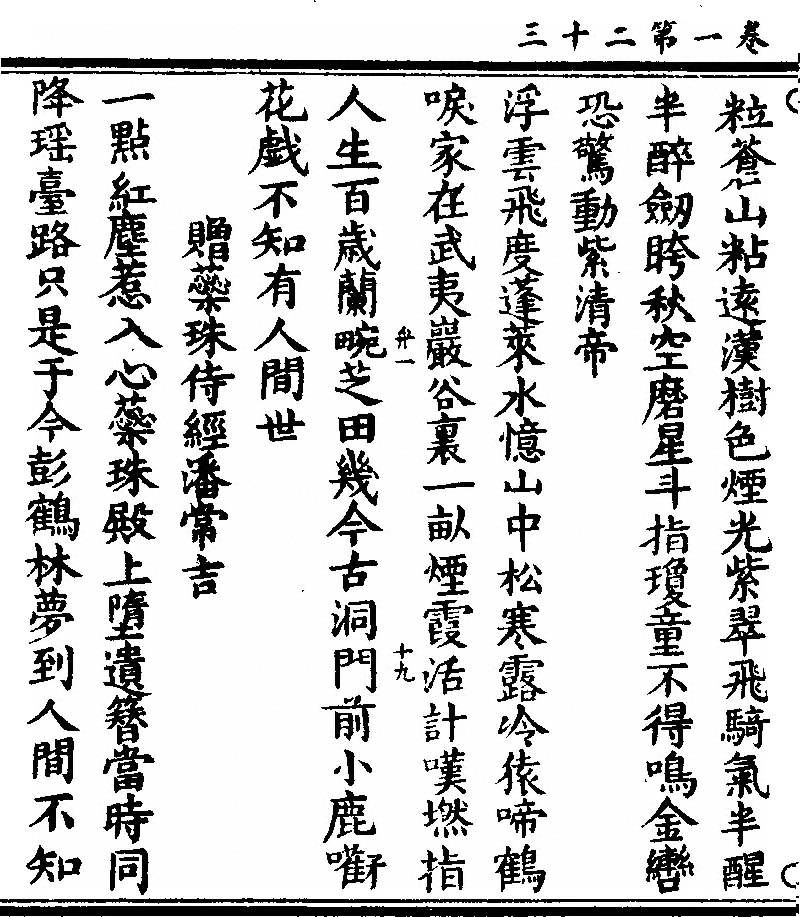 卷一第二十三
粒蒼山粘遠漢樹色煙光紫翠飛騎氣半醒
半醉劒眸秋空磨星斗指瓊童不得鳴金轡
恐驚動紫清帝
浮雲飛度蓬萊水憶山中松寒露冷猿啼鶴
唳家在武夷巖谷裏一畝煙霞活計嘆撚指
弁一
十九
人生百歳蘭畹芝田幾今古洞門前小鹿嚼
花戲不知有人間世
贈蘂珠侍經潘常吉
一點紅塵惹入心蘂珠殿上墮遺簪當時同
降瑶臺路只是于今彭鶴林夢到人間不知